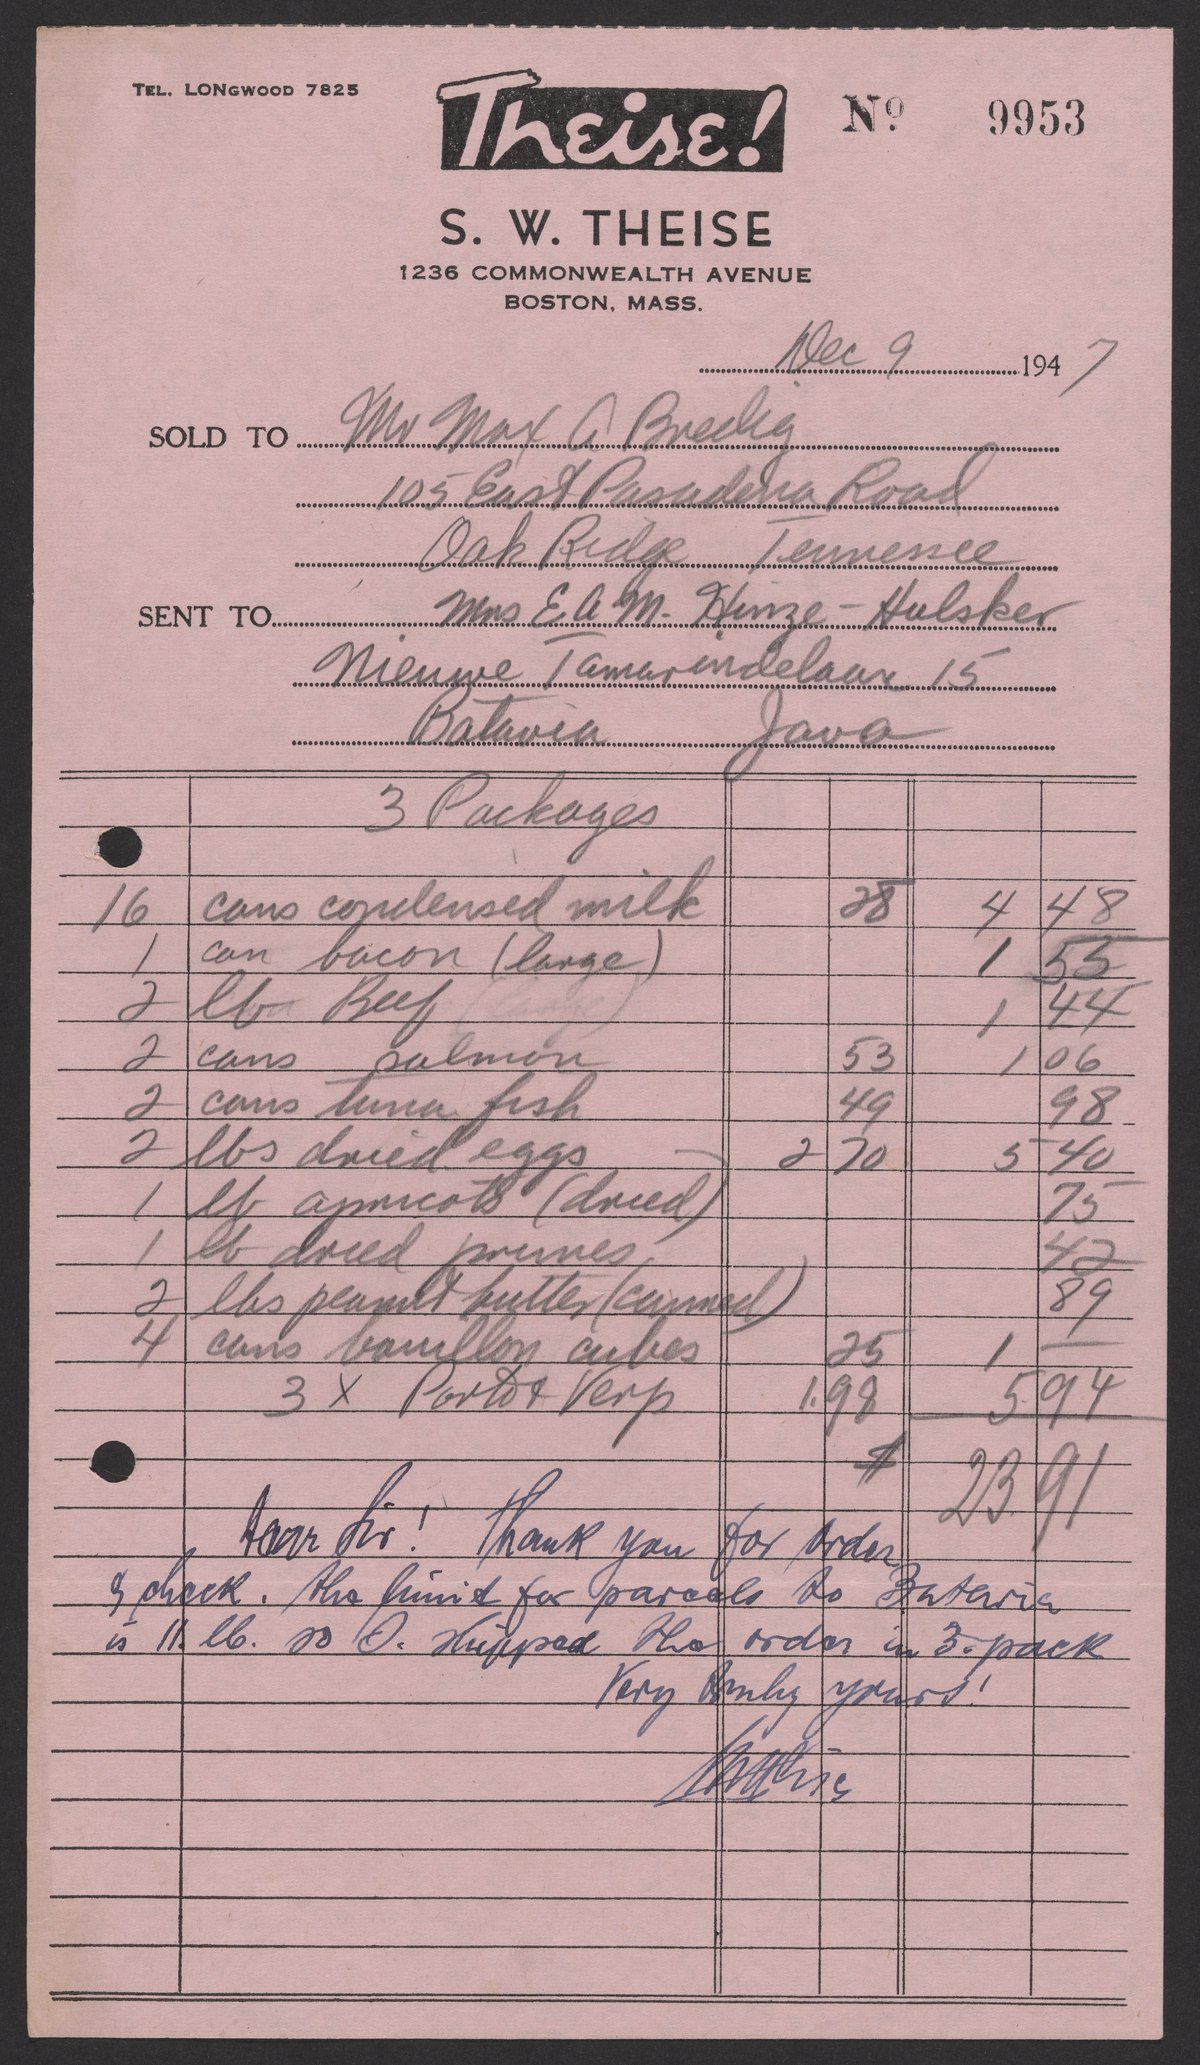 TEL. LONGWOOD 7825
Theise!
Nº 9953
S. W. THEISE
1236 COMMONWEALTH AVENUE
BOSTON, MASS.
Dec 9 1947
SOLD TO Mr Max A Bredig
105 East Pasadena Road
Oak Ridge Tennessee
SENT TO Mrs E A M. Hinze-Hulsker
Nieuwe Tamarindelaan 15
Batavia Java
3 Packages
16 cans condensed milk 28 4 48
1 can bacon (large) 1 55
2 lbs Beef 1 44
2 cans salmon 53 1 06
2 cans tuna fish 49 98
2 lbs dried eggs 2 70 5 40
1 lb apricots (dried) 75
1 lb dried prunes 42
2 lbs peanut butter (canned) 89
4 cans bouillon cubes 25 1 —
3 x Porto & Verp 1.98 5.94
$ 23.91
Dear Sir! Thank you for order
& check. The limit for parcels to Batavia
is 11 lb. so I. shipped the order in 3. pack
Very truly yours!